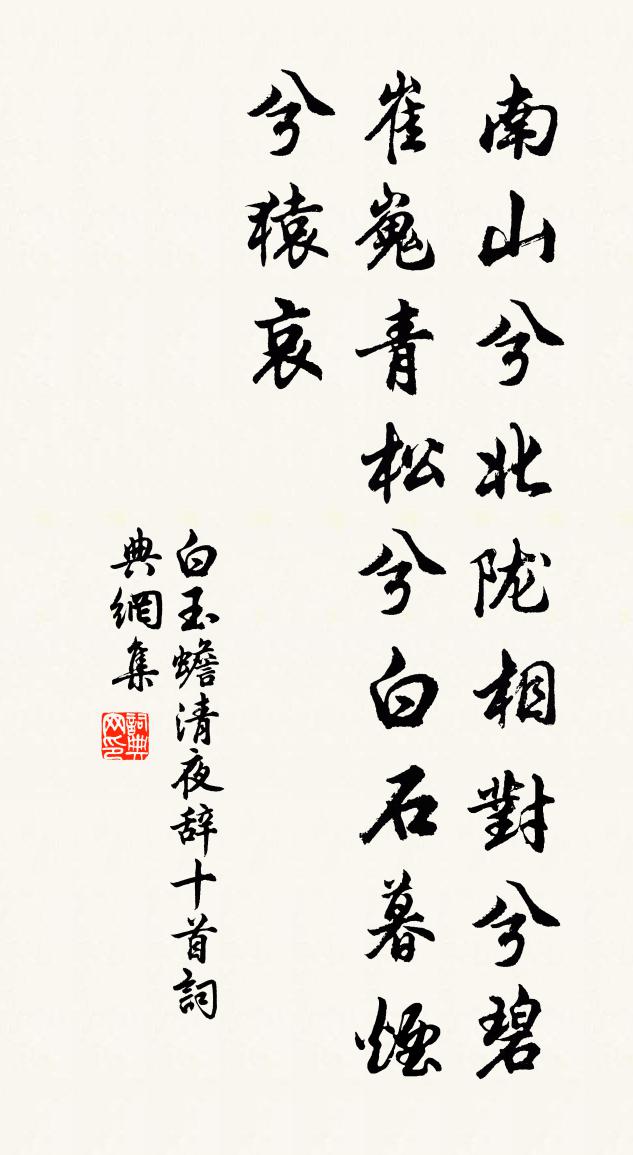 南山兮北陇相對兮碧
崔嵬青松兮白石暮煙
兮猿哀
白玉蟾清夜辞十首詞
典網集
詞典网印